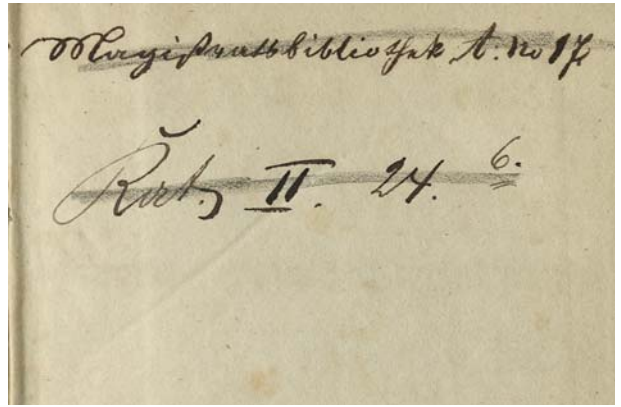 Magistratsbibliothek A. No 17
Kat. II. 24. 6.